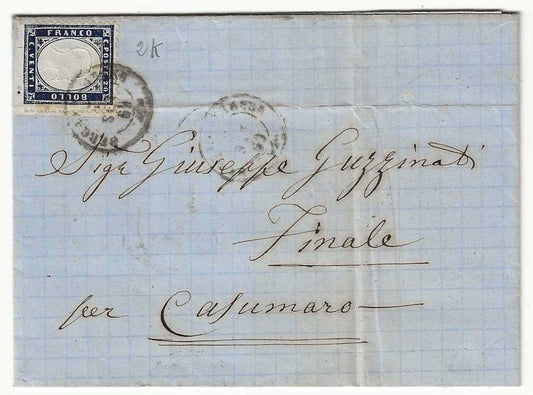 FRANCO
C. POSTE 20
C. VENTI
BOLLO
2K
Sigr Giuseppe Guzzinati
Finale
per Casumaro